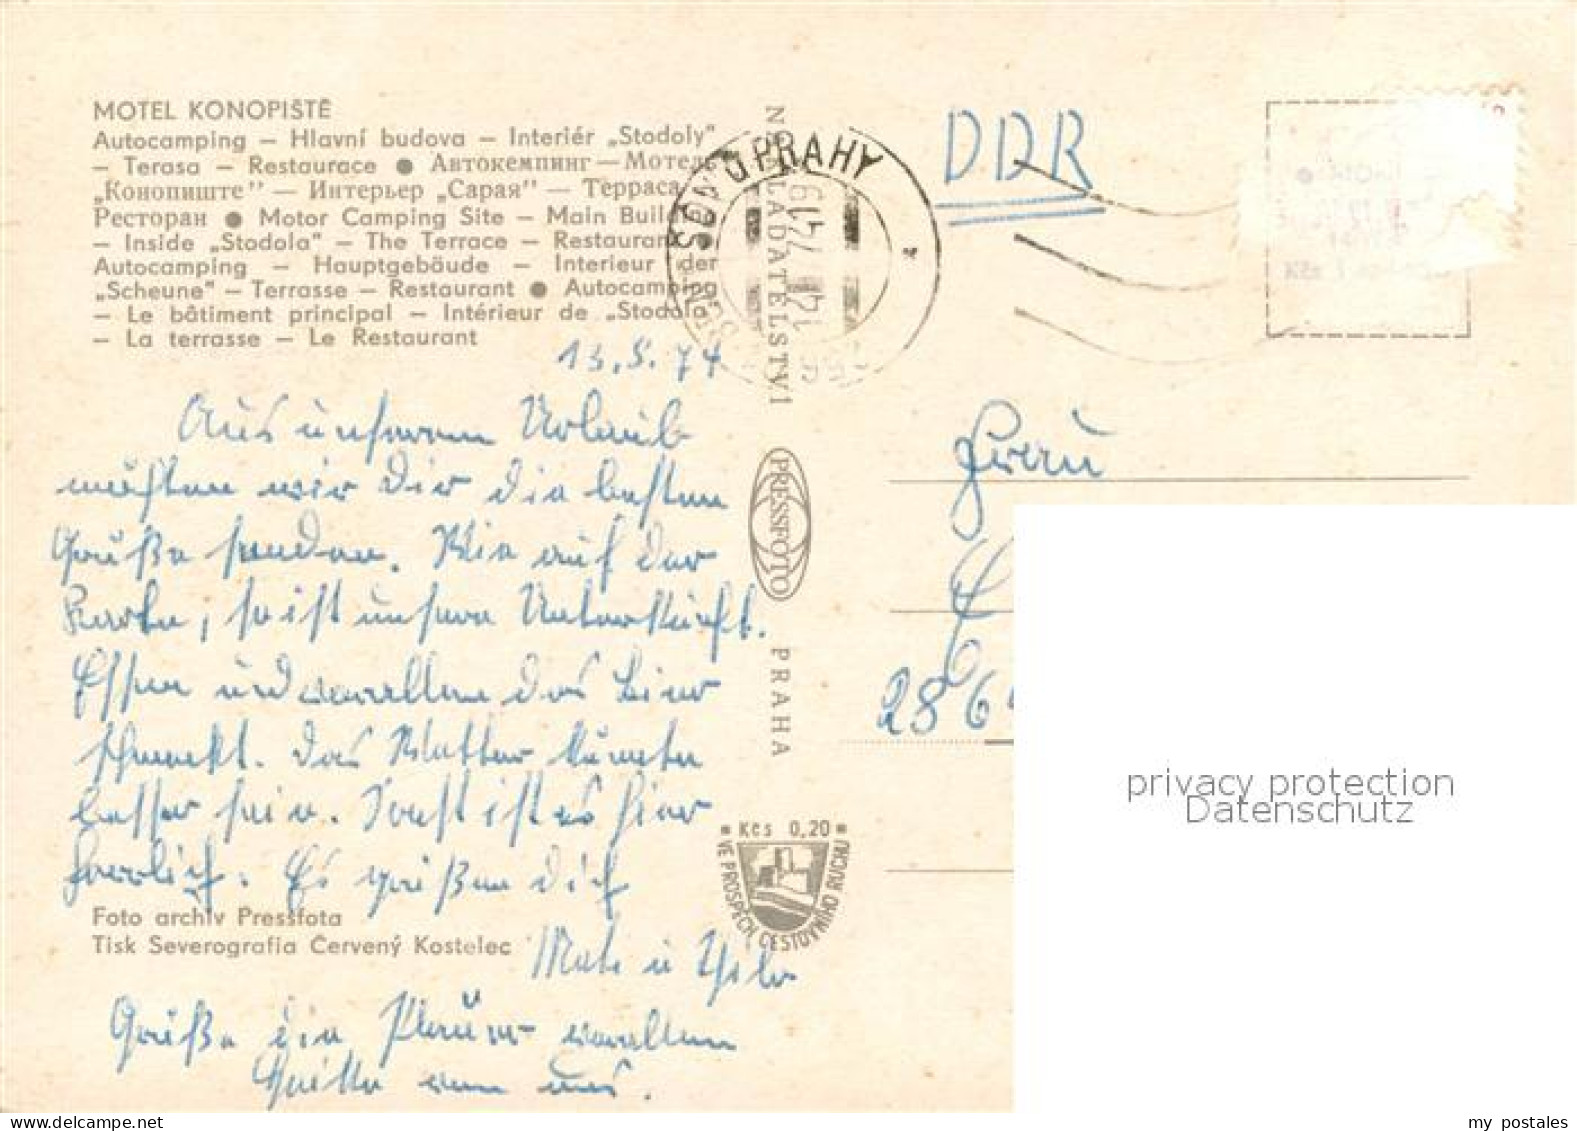 MOTEL KONOPIŠTĚ
Autocamping – Hlavní budova – Interiér „Stodoly"
– Terasa – Restaurace ● Автокемпинг — Мотель
„Конопиште" — Интерьер „Сарая" — Терраса
Ресторан ● Motor Camping Site – Main Building
– Inside „Stodola" – The Terrace – Restaurant ●
Autocamping – Hauptgebäude – Interieur der
„Scheune" – Terrasse – Restaurant ● Autocamping
– Le bâtiment principal – Intérieur de „Stodola"
– La terrasse – Le Restaurant
13.5.74
Aus unserem Urlaub
möchten wir Dir die besten
Grüße senden. Wie auf der
Karte, so ist unsere Unterkunft.
Essen und das Bier
schmeckt. Das Wetter könnte
besser sein. Sonst ist es hier
herrlich. Es grüßen dich
u Thilo
Grüße die
von uns.
Foto archiv Pressfota
Tisk Severografia Červený Kostelec
NAKLADATELSTVÍ
PRESSFOTO
PRAHA
U PRAHY
Kčs 0,20
VE PROSPĚCH CESTOVNÍHO RUCHU
DDR
Frau
286
privacy protection
Datenschutz
my postales